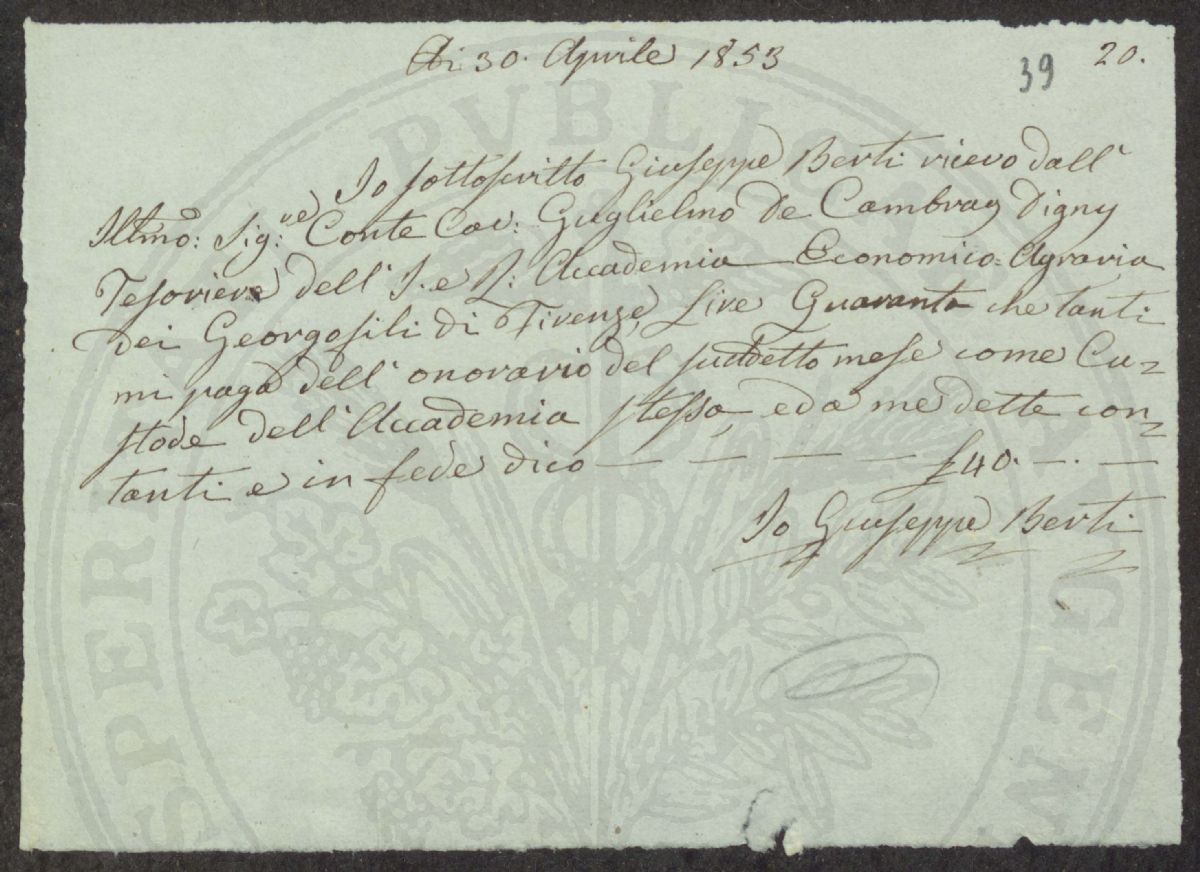 Adì 30. Aprile 1853
39
20.
Io sottoscritto Giuseppe Berti ricevo dall'
Illmo: Sig:re Conte Cav: Guglielmo De Cambray Digny
Tesoriere dell' I. e R: Accademia Economico-Agraria
Dei Georgofili di Firenze, Lire Quaranta che tanti
mi paga dell' onorario del suddetto mese come Cu=
stode dell' Accademia stessa, ed a me dette con=
tanti e in fede dico — — — — — £ 40. — . —
Io Giuseppe Berti
PUBLICA
PROSPERITATI
AUGEN